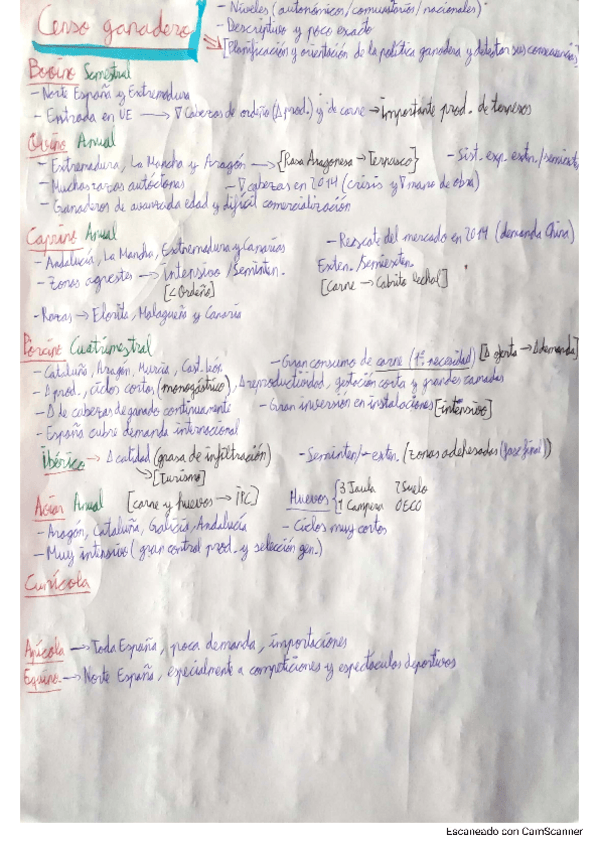 Censo ganadero
- Niveles (autonómicos/comunitarios/nacionales)
- Descriptivo y poco exacto
[Planificación y orientación de la política ganadera y detectar sus consecuencias]
Bovino Semestral
- Norte España y Extremadura
- Entrada en UE → ∇ Cabezas de ordeño (Δ prod.) y de carne → Importante prod. de terneros
Ovino Anual
- Extremadura, La Mancha y Aragón → [Rasa Aragonesa → Ternasco] - Sist. exp. exten./semiexten.
- Muchas razas autóctonas - ∇ cabezas en 2014 (crisis y ∇ mano de obra)
- Ganaderos de avanzada edad y difícil comercialización
Caprino Anual
- Andalucía, La Mancha, Extremadura y Canarias - Rescate del mercado en 2014 (demanda China)
- Zonas agrestes → intensivo /Seminten. Exten./Semiexten.
[∠Ordeño] [Carne → Cabrito lechal]
- Razas → Florida, Malagueña y Canaria
Porcino Cuatrimestral
- Cataluña, Aragón, Murcia, Cast. León - Gran consumo de carne (1ª necesidad) [Δ oferta → Δ demanda]
- Δ prod., ciclos cortos (monogástrico), Δ reproductividad, gestación corta y grandes camadas
- Δ de cabezas de ganado continuamente - Gran inversión en instalaciones [intensivo]
- España cubre demanda internacional
Ibérico → Δ calidad (grasa de infiltración) - Seminten/-exten. (zonas adehesadas (fase final))
→ [Turismo]
Aviar Anual [carne y huevos → IPC] Huevos { 3 Jaula 2 Suelo
1 Campera 0 ECO
- Aragón, Cataluña, Galicia, Andalucía - Ciclos muy cortos
- Muy intensivo (gran control prod. y selección gen.)
Cunícola
Apícola → Toda España, poca demanda, importaciones
Equino → Norte España, especialmente a competiciones y espectáculos deportivos
Escaneado con CamScanner